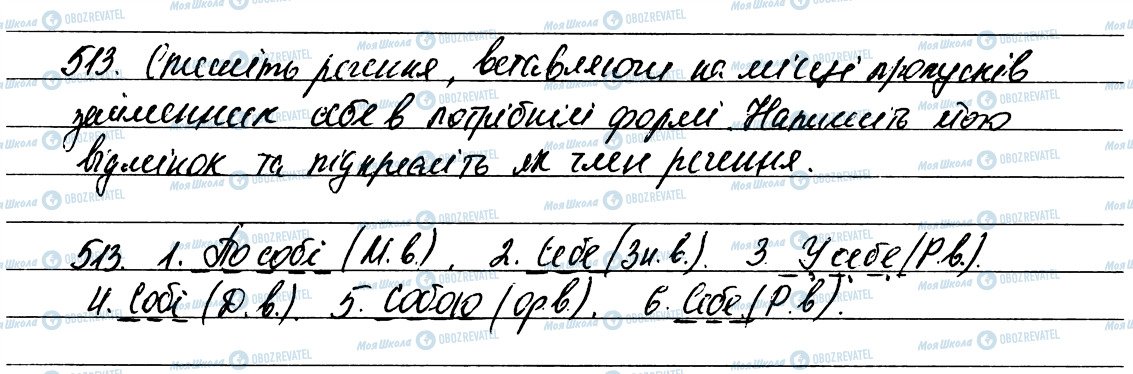 513. Спишіть речення, вставляючи на місці пропусків
займенник себе в потрібній формі. Напишіть його
відмінок та підкресліть як член речення.
513. 1. По собі (М.в.). 2. Себе (Зн.в.). 3. У себе (Р.в.).
4. Собі (Д.в.). 5. Собою (ор.в.). 6. Себе (Р.в.).